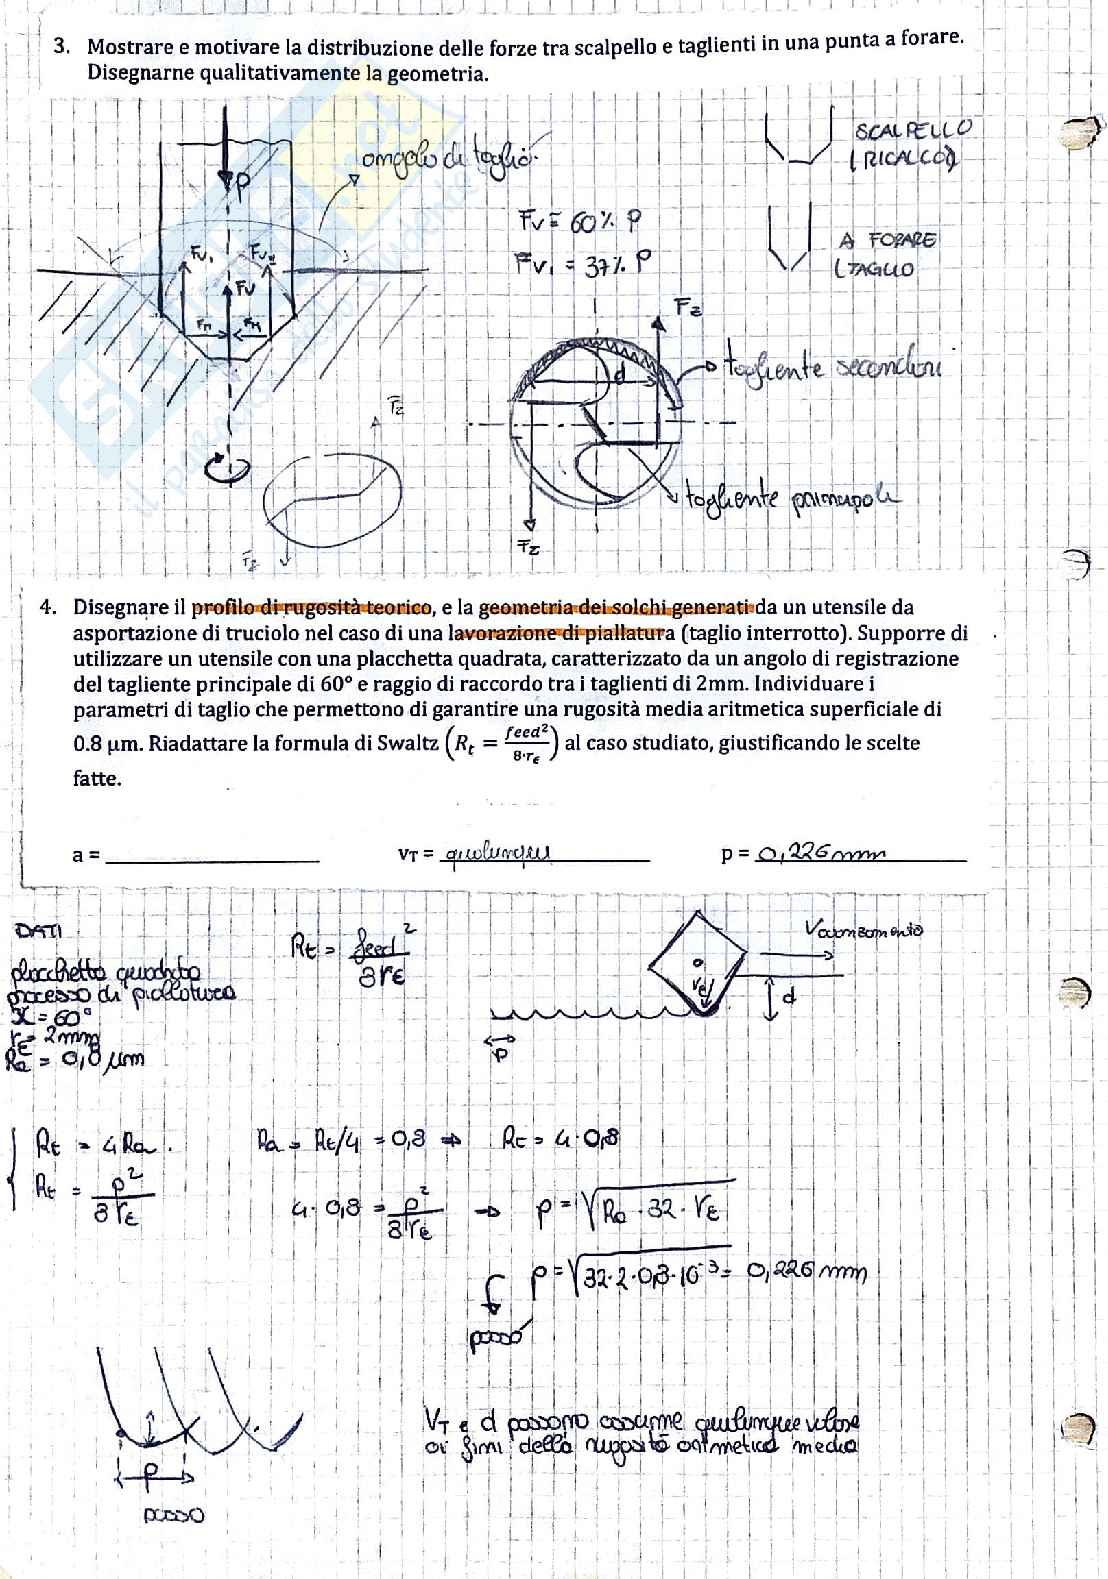 3. Mostrare e motivare la distribuzione delle forze tra scalpello e taglienti in una punta a forare.
Disegnarne qualitativamente la geometria.
P
angolo di taglio
SCALPELLO
(RICALCO)
Fv = 60% P
Fv₁ = 37% P
A FORARE
(TAGLIO
Fv₁
Fv
Fz
d
tagliente secondari
Fz
tagliente principale
Fz
Fz
4. Disegnare il profilo di rugosità teorico, e la geometria dei solchi generati da un utensile da
asportazione di truciolo nel caso di una lavorazione di piallatura (taglio interrotto). Supporre di
utilizzare un utensile con una placchetta quadrata, caratterizzato da un angolo di registrazione
del tagliente principale di 60° e raggio di raccordo tra i taglienti di 2mm. Individuare i
parametri di taglio che permettono di garantire una rugosità media aritmetica superficiale di
0.8 µm. Riadattare la formula di Swaltz (Rt = feed²/8·rϵ) al caso studiato, giustificando le scelte
fatte.
a = vT = qualunque p = 0,226 mm
DATI
placchetta quadrata
processo di piallatura
χ = 60°
rε = 2mm
Ra = 0,8 µm
Rt = feed²/8rε
Vavanzamento
rε
d
p
Rt = 4Ra.
Rt = p²/8rε
Ra = Rt/4 = 0,8 ⇒ Rt = 4·0,8
4·0,8 = p²/8rε → p = √Ra·32·rε
p = √32·2·0,8·10⁻³ = 0,226 mm
passo
p
passo
VT e d possono assume qualunque valore
ai fini della rugosità aritmetica media